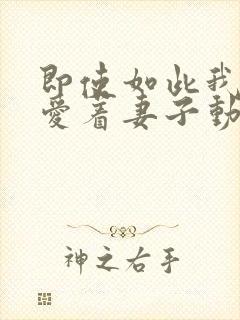 即使如此我
愛着妻子動
神之右手